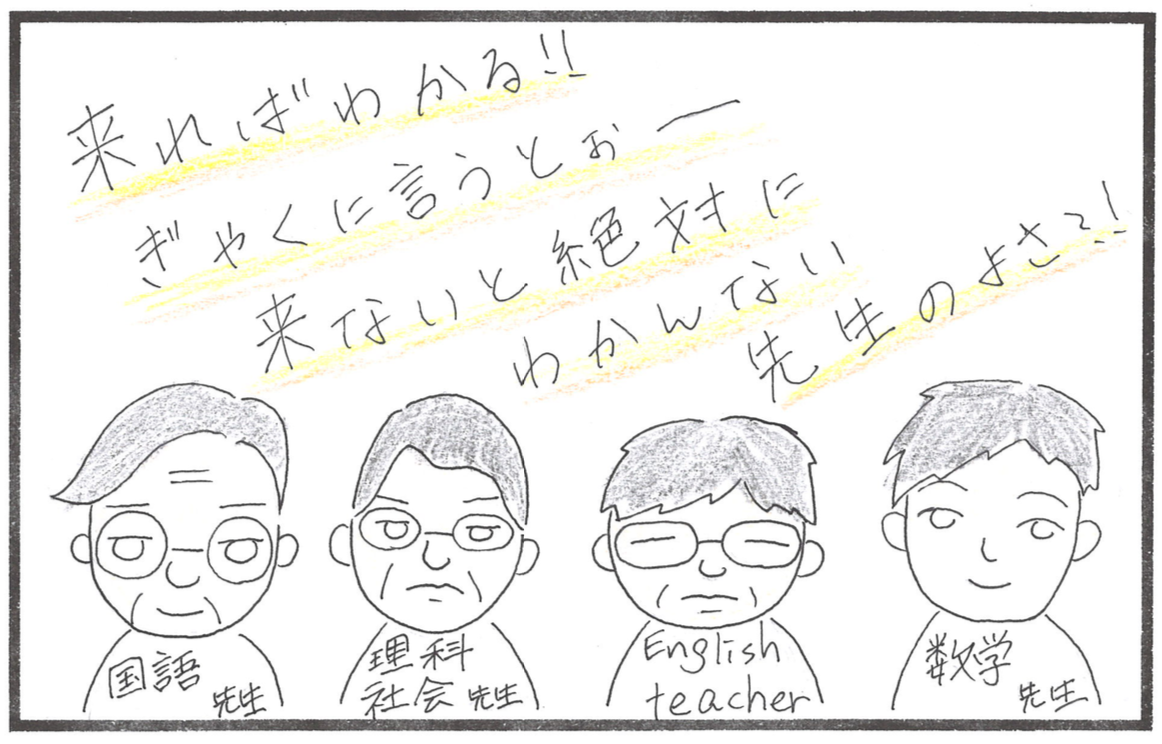 来ればわかる!!
ぎゃくに言うとぉー
来ないと絶対に
わかんない
先生のよさ?!
国語
先生
理科
社会 先生
English
teacher
数学
先生